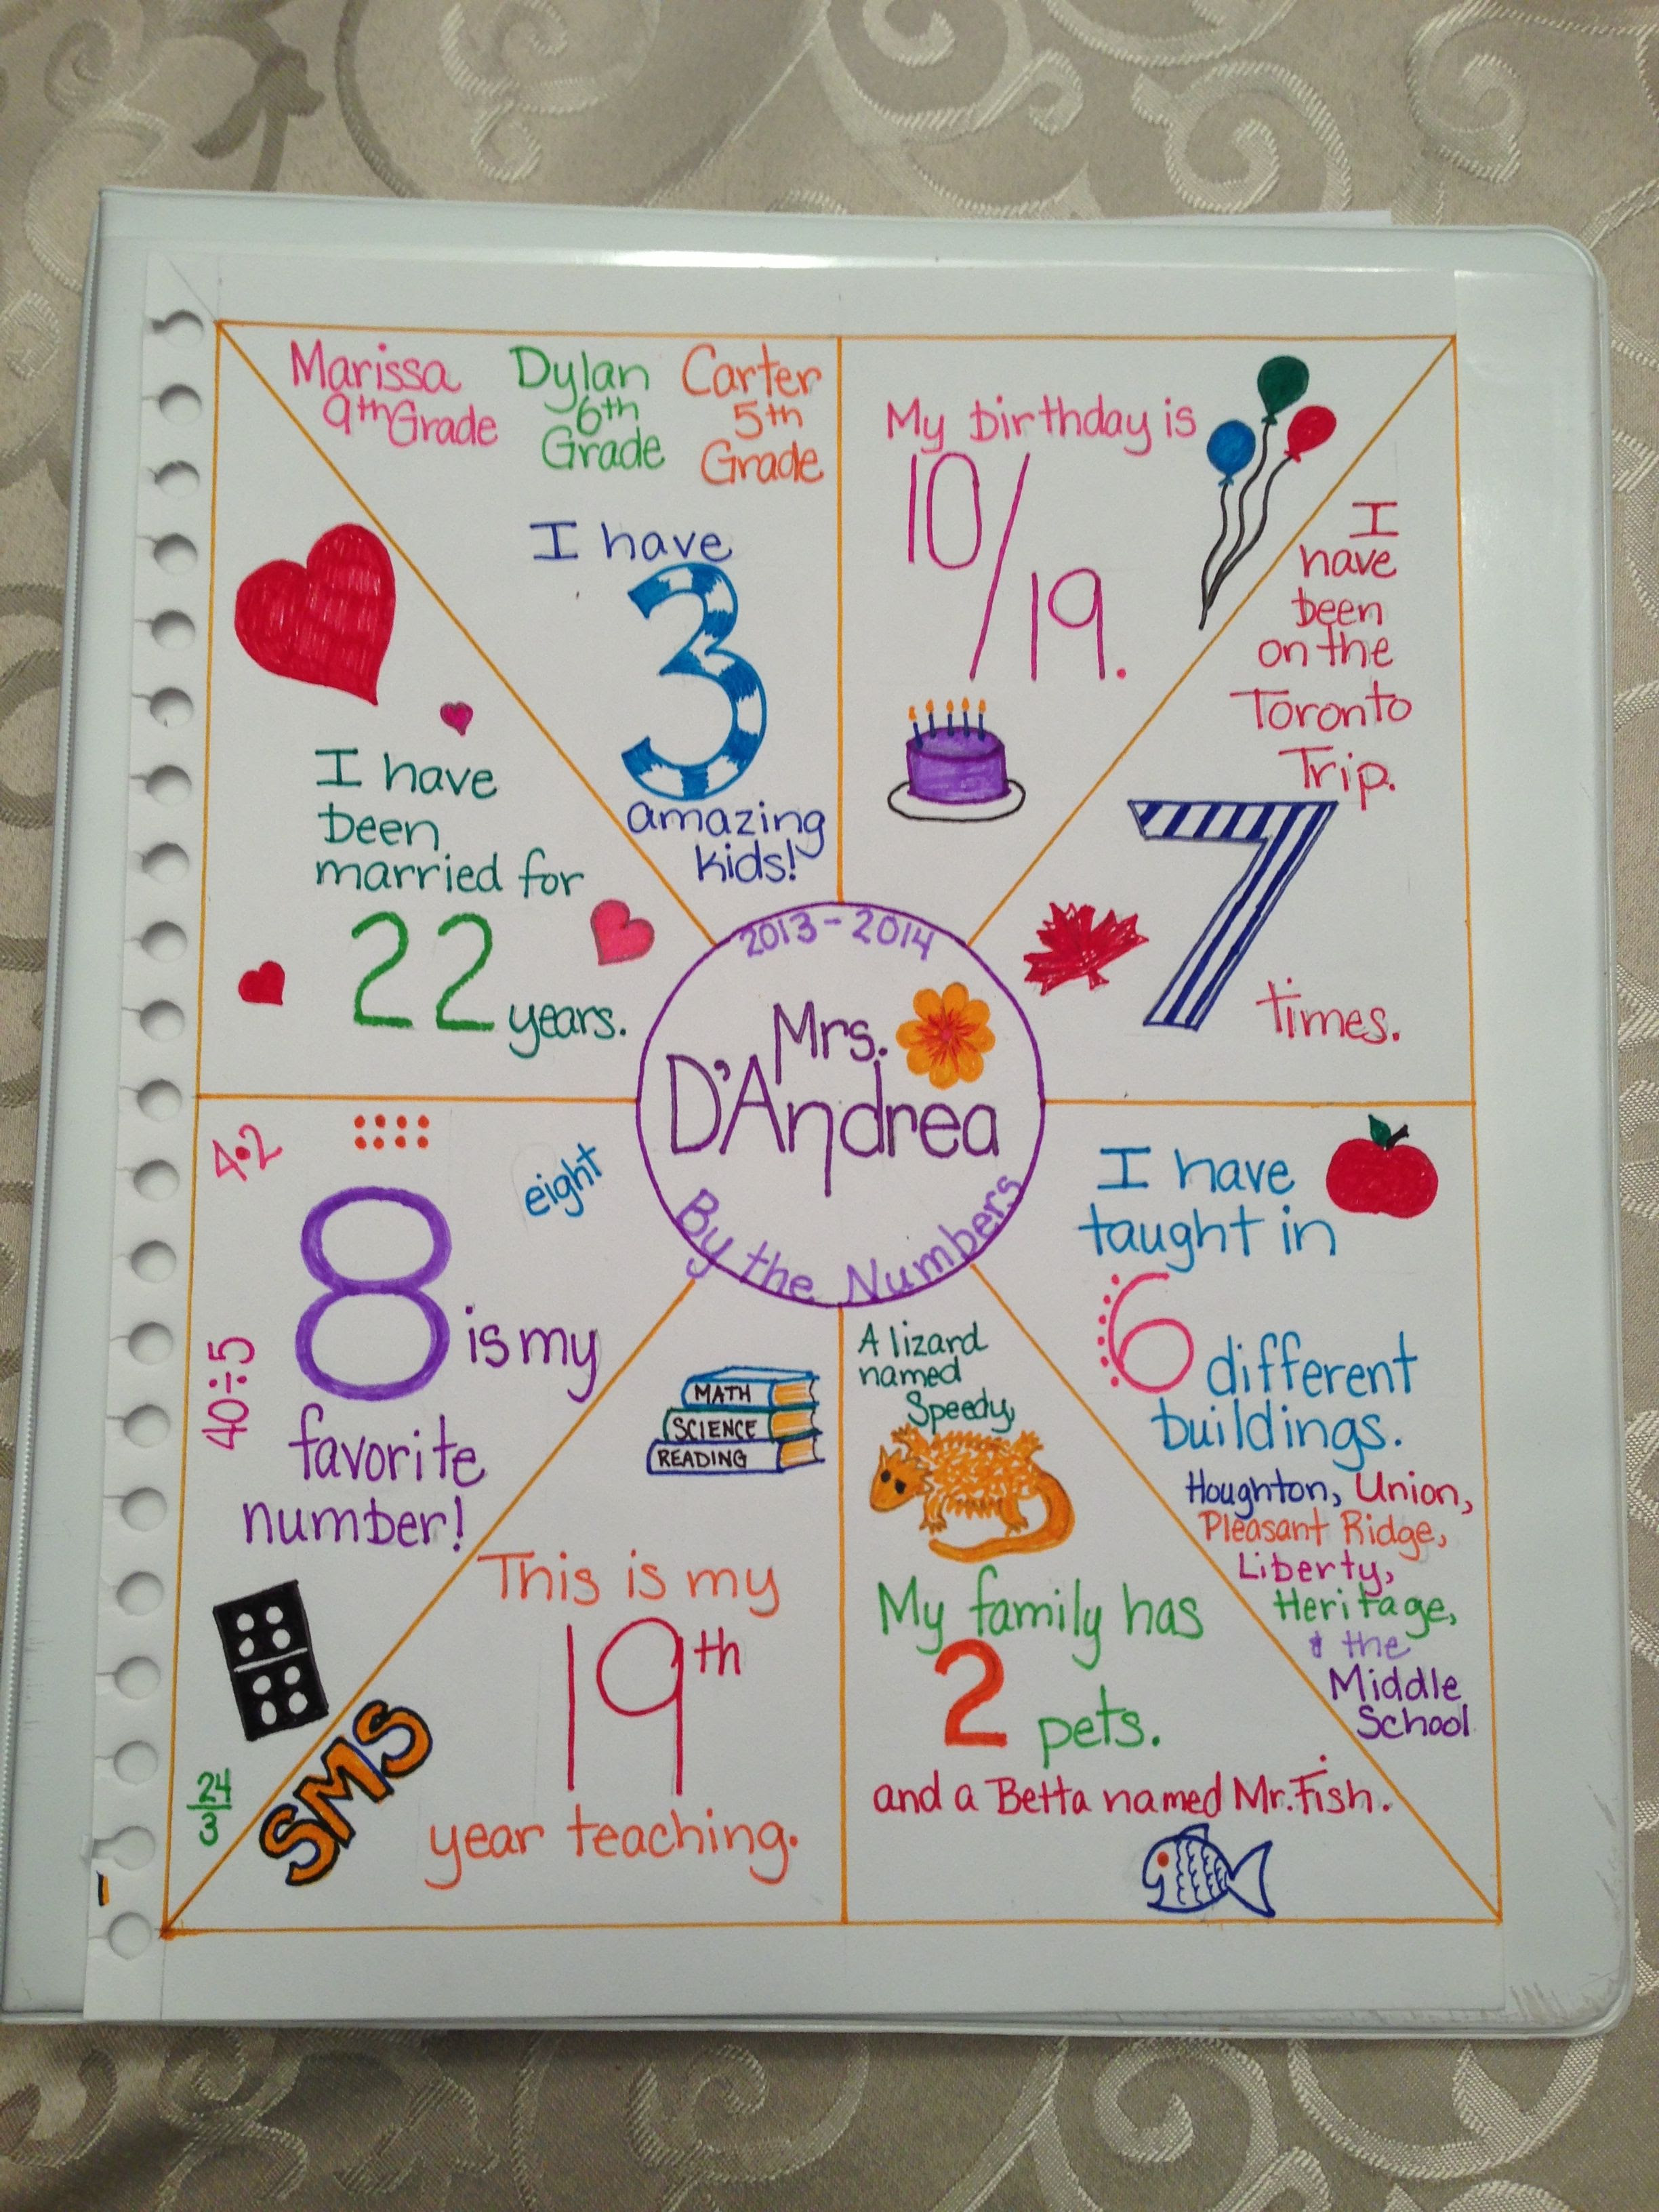 Marissa
9th Grade
Dylan
6th
Grade
Carter
5th
Grade
I have
3
amazing
kids!
My birthday is
10/19.
I
have
been
on the
Toronto
Trip.
7
times.
I have
been
married for
22 years.
2013-2014
Mrs.
D'Andrea
By the Numbers
4•2
eight
8 is my
favorite
number!
40÷5
24
3
I have
taught in
6 different
buildings.
Houghton, Union,
Pleasant Ridge,
Liberty,
Heritage,
& the
Middle
School
MATH
SCIENCE
READING
This is my
19th
year teaching.
SMS
A lizard
named
Speedy,
My family has
2 pets.
and a Betta named Mr. Fish.